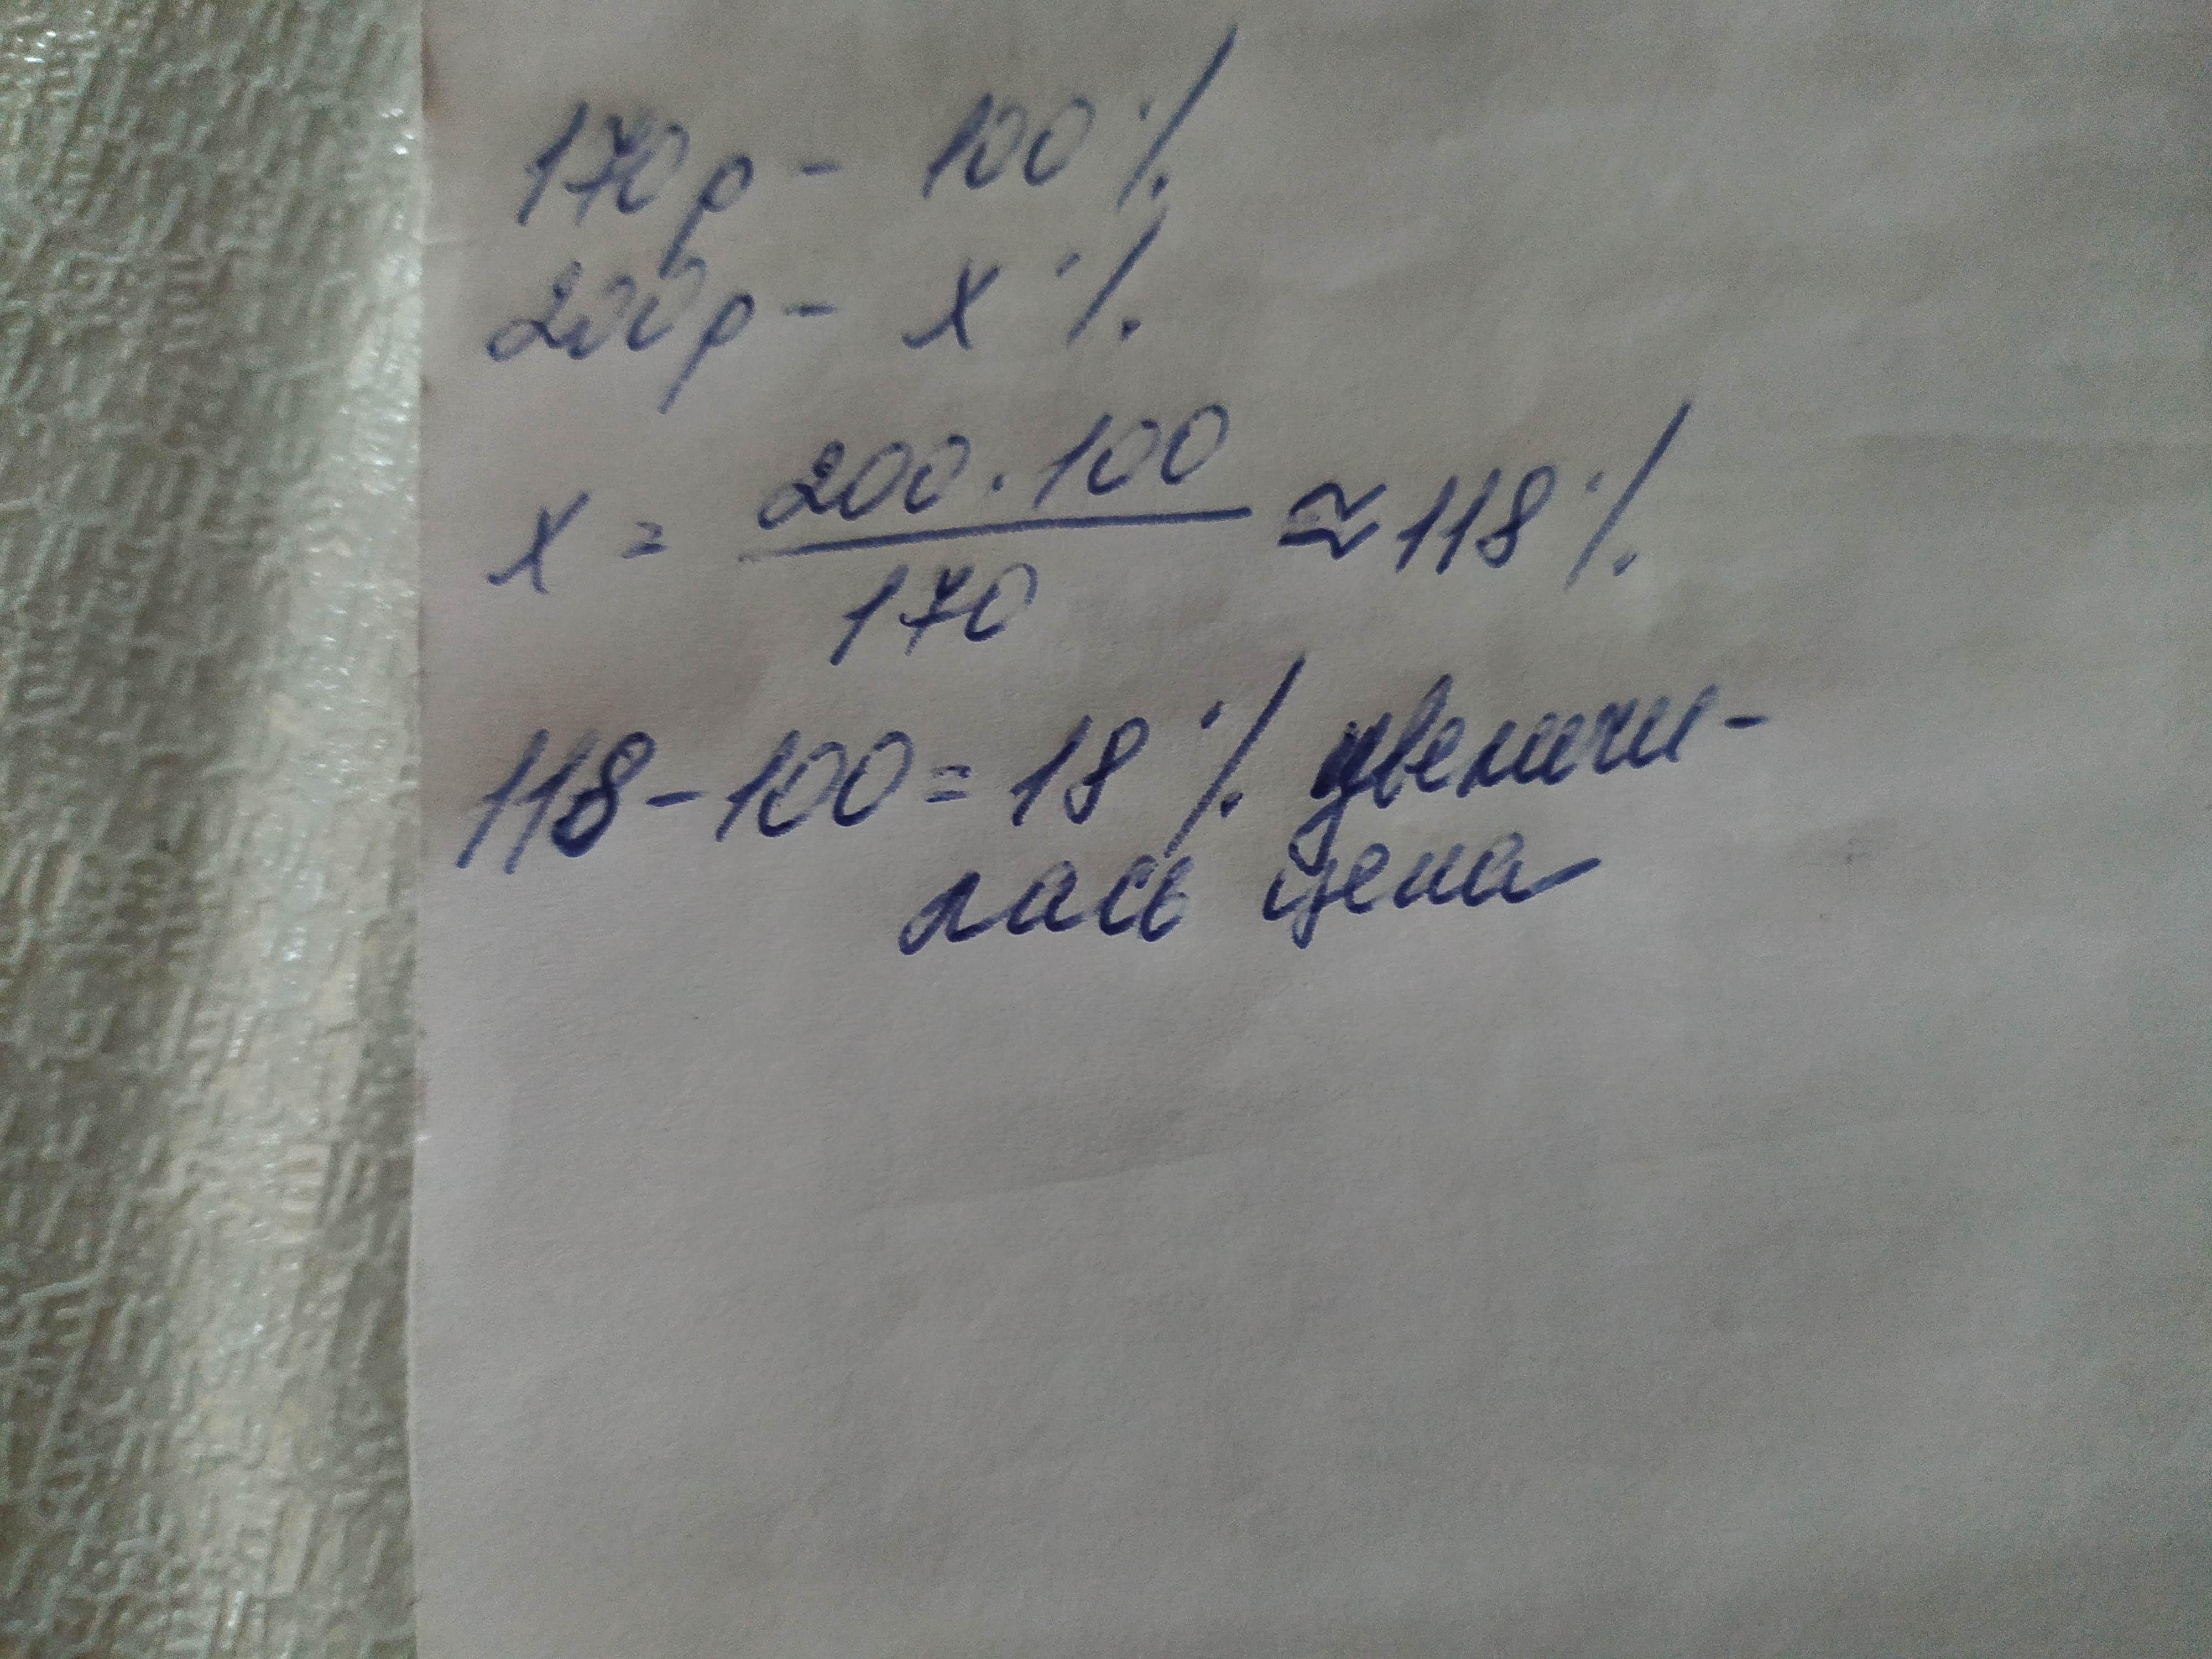 170р - 100%
200р - х%
х = 200·100 / 170 ≈ 118%
118-100=18% увеличи-
лась цена